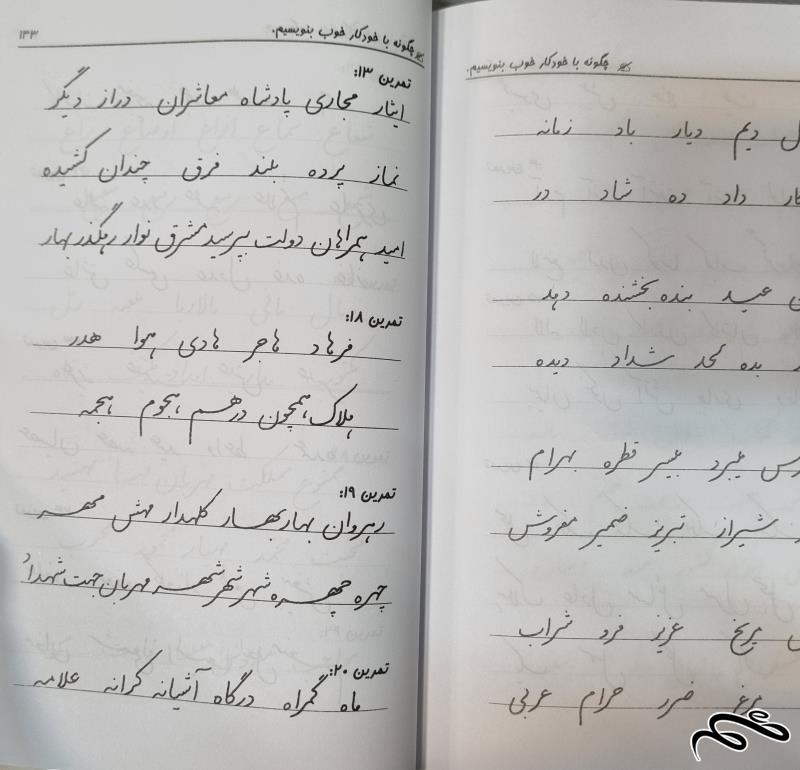 چگونه با خودکار خوب بنویسیم.
دیم دیار باد زمانه
داد ده شاد در
عید بنده بخشنده دهد
بده لحد شداد دیده
میبرد میسر قطره بهرام
شیراز تبریز ضمیر مفروش
مریخ عزیز فرد شراب
مرغ ضرر حرام عربی
چگونه با خودکار خوب بنویسیم. ۱۳۳
تمرین ۱۳:
ایثار مجاری پادشاه معاشران دراز دیگر
نماز پرده بلند فرق چندان کشیده
امید همراهان دولت بپرسید مشرق نوار رهگذر بهار
تمرین ۱۸:
فرهاد هاجر هادی هوا هدر
هلاک همچون درهم هجوم هجمه
تمرین ۱۹:
رهروان بهار بهار کلهدار مهش مهر
چهره چهره شهر شهر شهر مهربان جهت شهدا
تمرین ۲۰:
ماه گمراه درگاه آشیانه کرانه علامه